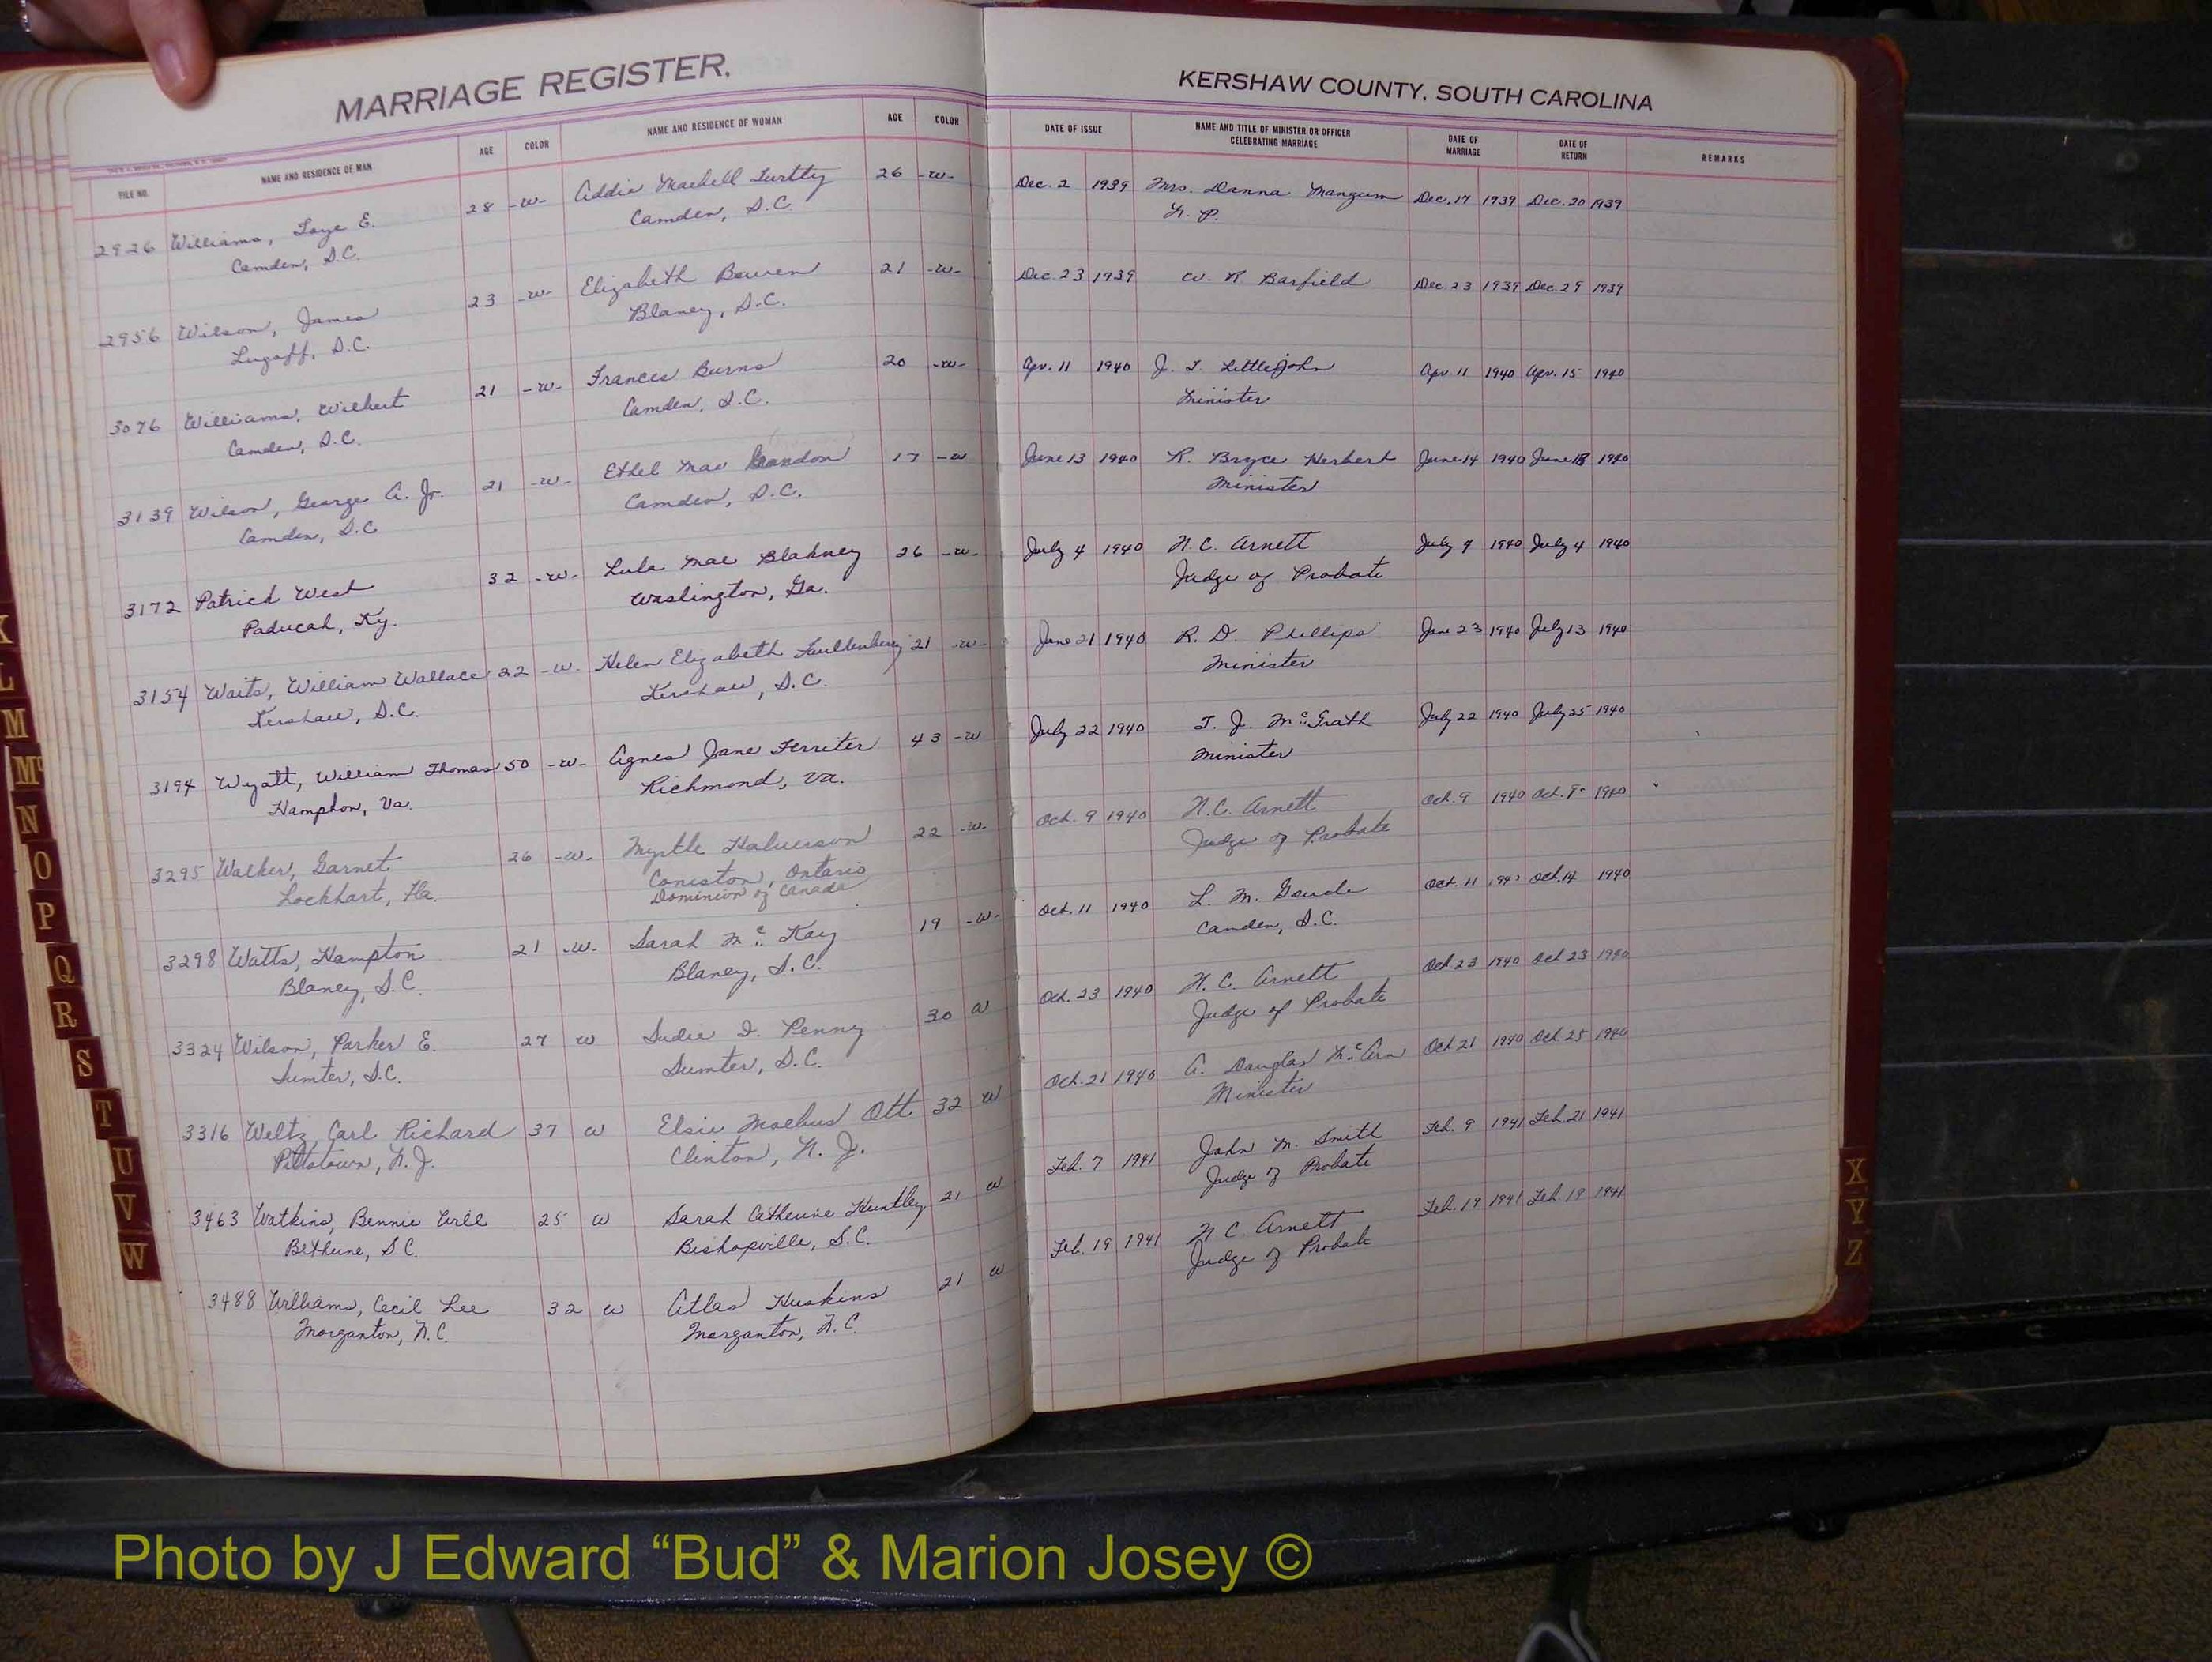 MARRIAGE REGISTER.
KERSHAW COUNTY, SOUTH CAROLINA
FILE NO. NAME AND RESIDENCE OF MAN AGE COLOR NAME AND RESIDENCE OF WOMAN AGE COLOR DATE OF ISSUE NAME AND TITLE OF MINISTER OR OFFICER CELEBRATING MARRIAGE DATE OF MARRIAGE DATE OF RETURN REMARKS
2926 Williams, Faye E. 28 -W- Addie 26 -W- Dec. 2 1939 Mrs. Danna Mangum Dec. 17 1939 Dec. 20 1939
Camden, S.C. Camden, S.C. N. P.
2956 Wilson, James 23 -W- Elizabeth Bowen 21 -W- Dec. 23 1939 W. R. Barfield Dec. 23 1939 Dec. 29 1939
Lugoff, S.C. Blaney, S.C.
3076 Williams, Wilbert 21 -W- Frances Burns 20 -W- Apr. 11 1940 J. T. Littlejohn Apr. 11 1940 Apr. 15 1940
Camden, S.C. Camden, S.C. Minister
3139 Wilson, George A. Jr. 21 -W- Ethel Mae Brandon 17 -W June 13 1940 R. Bryce Herbert June 14 1940 June 18 1940
Camden, S.C Camden, S.C. Minister
3172 Patrick West 32 -W- Lula Mae Blakney 26 -W- July 4 1940 N. C. Arnett July 4 1940 July 4 1940
Paducah, Ky. Washington, Ga. Judge of Probate
3154 Waits, William Wallace 22 -W- Helen Elizabeth Faulkenberry 21 -W- June 21 1940 R. D. Phillips June 23 1940 July 13 1940
Kershaw, S.C. Kershaw, S.C. Minister
3194 Wyatt, William Thomas 50 -W- Agnes Jane Ferriter 43 -W July 22 1940 T. J. McGrath July 22 1940 July 25 1940
Hampton, Va. Richmond, Va. Minister
3295 Walker, Garnet 26 -W- Myrtle Halverson 22 -W- Oct. 9 1940 N. C. Arnett Oct. 9 1940 Oct. 9 1940
Lockhart, Fla. Coniston, Ontario Judge of Probate
Dominion of Canada
3298 Watts, Hampton 21 -W- Sarah McKay 19 -W- Oct. 11 1940 L. M. Oct. 11 Oct. 14 1940
Blaney, S.C. Blaney, S.C. Camden, S.C.
3324 Wilson, Parker E. 27 W Sudie I. Penny 30 W Oct. 23 1940 N. C. Arnett Oct 23 1940 Oct 23 1940
Sumter, S.C. Sumter, S.C. Judge of Probate
3316 Weltz, Carl Richard 37 W Elsie Moebus Ott 32 W Oct. 21 1940 A. Douglas Oct 21 1940 Oct. 25 1940
Pittstown, N.J. Clinton, N.J. Minister
3463 Watkins, Bennie Will 25 W Sarah Catherine Huntley 21 W Feb. 7 1941 John M. Smith Feb. 9 1941 Feb 21 1941
Bethune, S.C. Bishopville, S.C. Judge of Probate
3488 Williams, Cecil Lee 32 W Atlas Huskins 21 W Feb. 19 1941 N C Arnett Feb. 19 1941 Feb. 19 1941
Morganton, N.C. Morganton, N.C. Judge of Probate
L
M
Mc
N
O
P
Q
R
S
T
U
V
W
X
Y
Z
Photo by J Edward “Bud” & Marion Josey ©